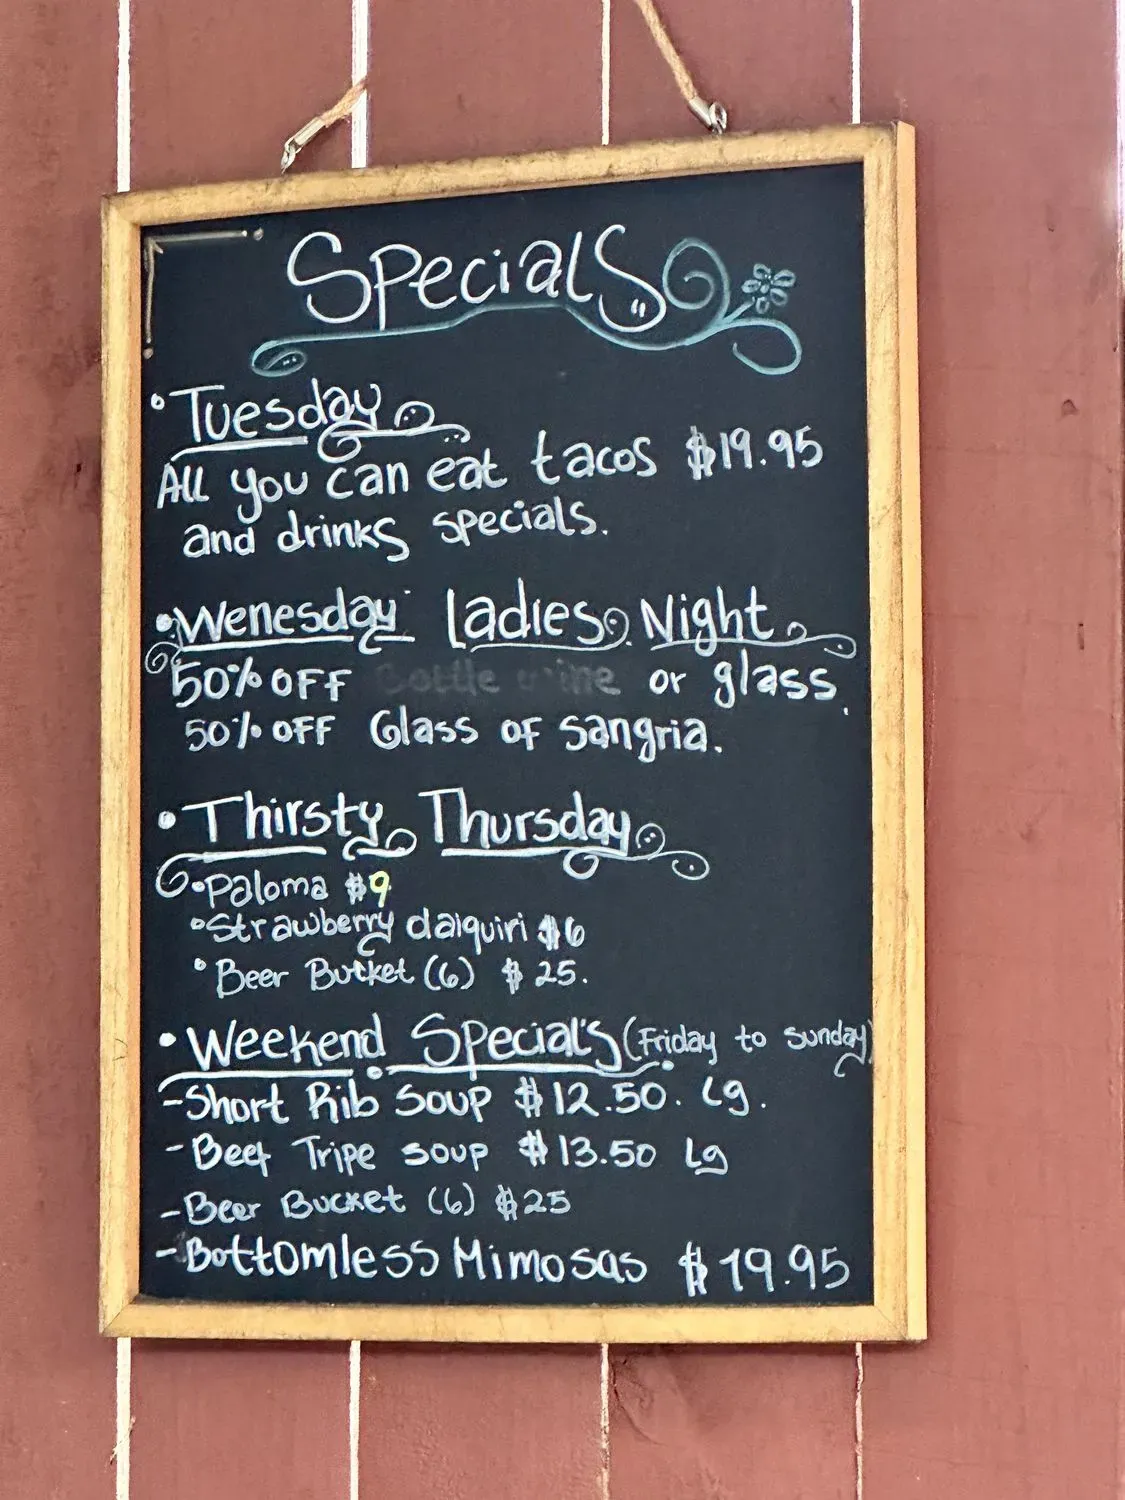 Specials
Tuesday
All you can eat tacos $19.95
and drinks specials.
Wenesday Ladies Night
50% OFF Bottle wine or glass.
50% OFF Glass of sangria.
Thirsty Thursday
Paloma $9
Strawberry daiquiri $6
Beer Bucket (6) $25.
Weekend Special's (Friday to Sunday)
-Short Rib Soup $12.50. Lg.
-Beef Tripe soup $13.50 Lg
-Beer Bucket (6) $25
-Bottomless Mimosas $19.95